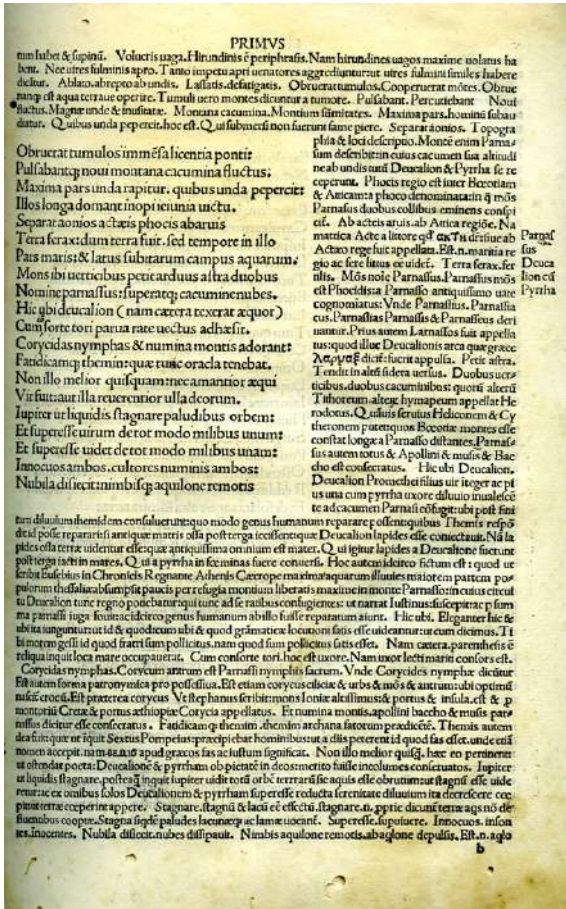 PRIMVS
tum habet & supinũ. Volucris uaga. Hirundinis ẽ periphrasis. Nam hirundines uagos maxime uolatus ha
bent. Nec uires fulminis apro. Tanto impetu apri uenatores aggrediuntur: ut uires fulmini similes habere
dicitur. Ablato. abrepto ab undis. Lassatis. defatigatis. Obruerat tumulos. Cooperuerat mõtes. Obrue
Tumuli uero montes dicuntur a tumore. Pulsabant. Percutiebant Noui
fluctus. Magnæ undæ & inusitatæ. Montana cacumina. Montium sũmitates. Maxima pars. hominũ subau
diatur. Quibus unda pepercit. hoc est. Qui submersi non fuerunt fame piere. Separat aonios. Topogra
Obruerat tumulos immẽsa licentia ponti:
Pulsabantq; noui montana cacumina fluctus.
Maxima pars unda rapitur. quibus unda pepercit:
Illos longa domant inopi ieiunia uictu.
Separat aonios actæis phocis ab aruis
Terra ferax: dum terra fuit. sed tempore in illo
Pars maris: & latus subitarum campus aquarum.
Mons ibi uerticibus petit arduus astra duobus
Nomine parnassus: superatq; cacumine nubes.
Hic ubi deucalion (nam cætera texerat æquor)
Cum sorte tori parua rate uectus adhæsit.
Corycidas nymphas & numina montis adorant:
Fatidicamq; themin: quæ tunc oracla tenebat.
Non illo melior quisquam: nec amantior æqui
Vir fuit: aut illa reuerentior ulla deorum.
Iupiter ut liquidis stagnare paludibus orbem:
Et superesse uirum de tot modo milibus unum:
Et superesse uidet de tot modo milibus unam:
Innocuos ambos. cultores numinis ambos:
Nubila disiecit: nimbisq; aquilone remotis
phia & loci descriptio. Montẽ enim Parna-
sum describit: in cuius cacumen sua altitudi
ne ab undis tutũ Deucalion & Pyrrha se re
ceperunt. Phocis regio est inter Bœotiam
& Atticam: a phoco denominata: in q̃ mõs
Parnasus duobus collibus eminens conspi
cit. Ab acteis aruis. ab Attica regiõe. Na
Actæo rege fuit appellata. Est. n. maritia re
gio ac fere litus ee uidet. Terra ferax. fer
tilis. Mõs noie Parnassus. Parnassus mõs
est Phocidis: a Parnasso antiquissimo uate
cognomiatus: Vnde Parnassius. Parnassia
cus. Parnassias Parnassis & Parnasseus deri
uantur. Prius autem Larnassos fuit appella
tus: quod illuc Deucalionis arca quæ græce
λαρναξ dicit: fuerit appulsa. Petit astra.
Tendit in ales sidera uersus. Duobus uer-
ticibus. duobus cacuminibus: quorũ alterũ
Tithoreum. alterz hymapeum appellat He
rodotus. Quis uis seruius Heliconem & Cy
theronem putet: quos Bœotiæ montes esse
constat longe a Parnasso distantes. Parnas-
sus autem totus & Apollini & musis & Bac
cho est consecratus. Hic ubi Deucalion.
Deucalion Promethei filius uir iteger ac pi
us una cum pyrrha uxore diluuio inualescẽ
te ad cacumen Parnasi cõfugit: ubi post fini
Parnas
sus
Deuca
lion cũ
Pyrrha
tum diluuium themidem consuluerunt: quo modo genus humanum reparare possent: quibus Themis respõ
dit id posse reparari: si antiquæ matris ossa post terga iecissent: quæ Deucalion lapides esse coniectauit. Nã la
pides ossa terræ uidentur esse: quæ antiquissima omnium est mater. Qui igitur lapides a Deucalione fuerunt
post terga iacti in mares. Qui a pyrrha in fœminas fuere conuersi. Hoc autem idcirco fictum est: quod ut
scribit Eusebius in Chronicis Regnante Athenis Cæcrope maxima aquarum illuuies maiorem partem po-
pulorum thessaliæ absumpsit paucis per refugia montium liberatis maxime in monte Parnasso: in cuius circui
tu Deucalion tunc regno potiebatur: qui tunc ad se ratibus confugientes: ut narrat Iustinus: suscepit: ac p sum
ma parnassi iuga fouit: ac idcirco genus humanum ab illo fuisse reparatum aiunt. Hic ubi. Eleganter hic &
ubi ita iunguntur: ut id & quod: cum ubi & quod grãmaticæ locutioni satis esse uideantur: ut cum dicimus. Ti
bi morem gessi id quod fratri sum pollicitus. nam quod sum pollicitus satis esset. Nam cætera. parenthesis ẽ
reliqua inquit loca mare occupauerat. Cum consorte tori. hoc est uxore. Nam uxor lecti mariti consors est.
Corycidas nymphas. Corycum antrum est Parnassi nymphis sacrum. Vnde Corycides nymphæ dicũtur
Est autem forma patronymica pro possessiua. Est etiam corycus ciliciæ & urbs & mõs & antrum: ubi optimũ
nascit crocũ. Est præterea corycus Vt stephanus scribit: mons Ioniæ altissimus: & portus & insula. est & p
montoriũ Cretæ & portus æthiopiæ Corycia appellatus. Et numina montis. apollini baccho & musis par-
nassos dicitur esse consecratus. Fatidicamq; themim. themim archana fatorum prædicẽtẽ. Themis autem
dea fuit: quæ ut iquit Sextus Pompeius: præcipiebat hominibus: ut a diis peterent id quod fas esset. unde etiã
nomen accepit. nam θεμισ apud græcos fas ac iustum significat. Non illo melior quisq̃. hæc eo pertinent
ut ostendat poeta: Deucalionẽ & pyrrham ob pietatẽ in deos: merito fuisse incolumes conseruatos. Iupiter
ut liquidis stagnare. posteaq̃ inquit iupiter uidit totũ orbẽ terrarũ sic aquis esse obrutum: ut stagnũ esse uide
retur: ac ex omibus solos Deucalionẽ & pyrrham superesse reducta serenitate diluuium ita decrescere cœ
pit: ut terræ cœperint appere. Stagnare. stagnũ & lacũ eẽ effectũ. stagnare. n. pprie dicunt terræ aqs nõ de
fluentibus cooptæ. Stagna siqdẽ paludes lacunæq; ac lamæ uocant. Superesse. supuiuere. Innocuos. inson
tes. inocentes. Nubila disiecit. nubes dissipauit. Nimbis aquilone remotis. ab aqlone depulsis. Est. n. aqlo
b